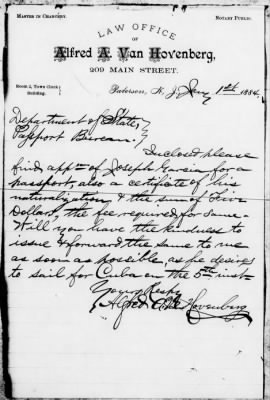 MASTER IN CHANCERY.
NOTARY PUBLIC.
LAW OFFICE
OF
Alfred A. Van Hovenberg,
209 MAIN STREET.
ROOM 2, TOWN CLOCK
BUILDING.
Paterson, N. J. Jany 1st 1884
Department of State,
Passport Bureau.
Inclosed please
find appn of Joseph Garcia for a
passport, also a certificate of his
naturalization & the sum of Five
Dollars, the fee required for same.
Will you have the kindness to
issue & forward the same to me
as soon as possible, as he desires
to sail for Cuba on the 5th inst
Yours Respy
Alfred A. Van Hovenberg